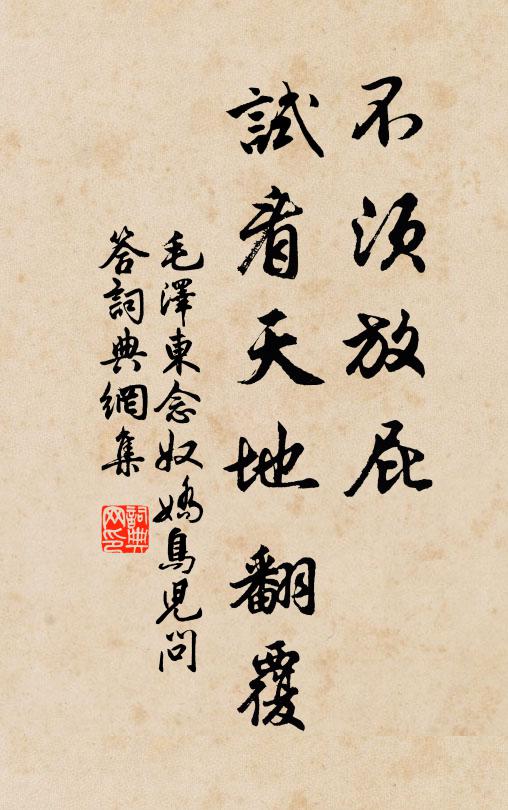 不須放屁
試看天地翻覆
毛澤東念奴嬌鳥兒問
答詞典網集
詞典
网印